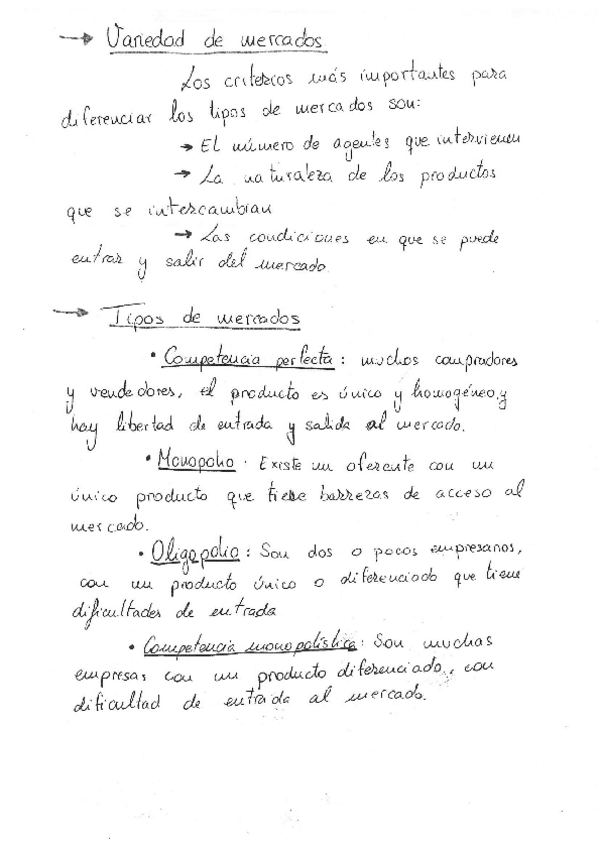 → Variedad de mercados
Los criterios más importantes para
diferenciar los tipos de mercados son:
→ El número de agentes que intervienen
→ La naturaleza de los productos
que se intercambian
→ Las condiciones en que se puede
entrar y salir del mercado.
→ Tipos de mercados
• Competencia perfecta: muchos compradores
y vendedores, el producto es único y homogéneo y
hay libertad de entrada y salida al mercado.
• Monopolio. Existe un oferente con un
único producto que tiene barreras de acceso al
mercado.
• Oligopolio: Son dos o pocos empresarios,
con un producto único o diferenciado que tiene
dificultades de entrada
• Competencia monopolística: Son muchas
empresas con un producto diferenciado, con
dificultad de entrada al mercado.